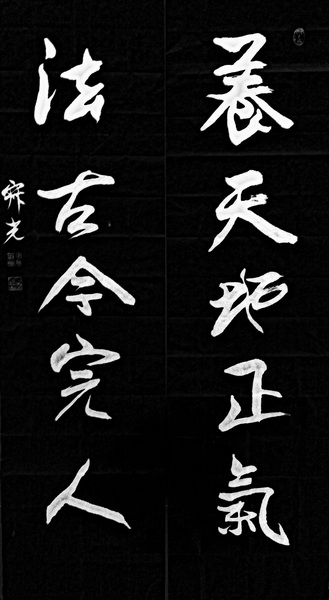 養天地正氣
法古今完人
寐光